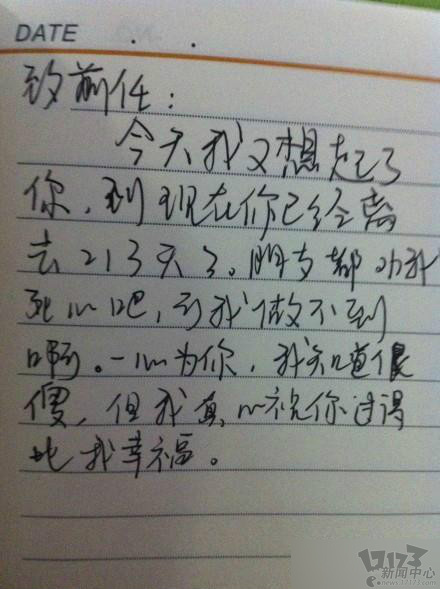 DATE . .
致前任：
今天我又想起了
你，到现在你已经离
去213天了。朋友都劝我
死心吧，可我做不到
啊。一心为你，我知道很
傻，但我真心祝你过得
比我幸福。
17173
新闻中心
e news.17173.com